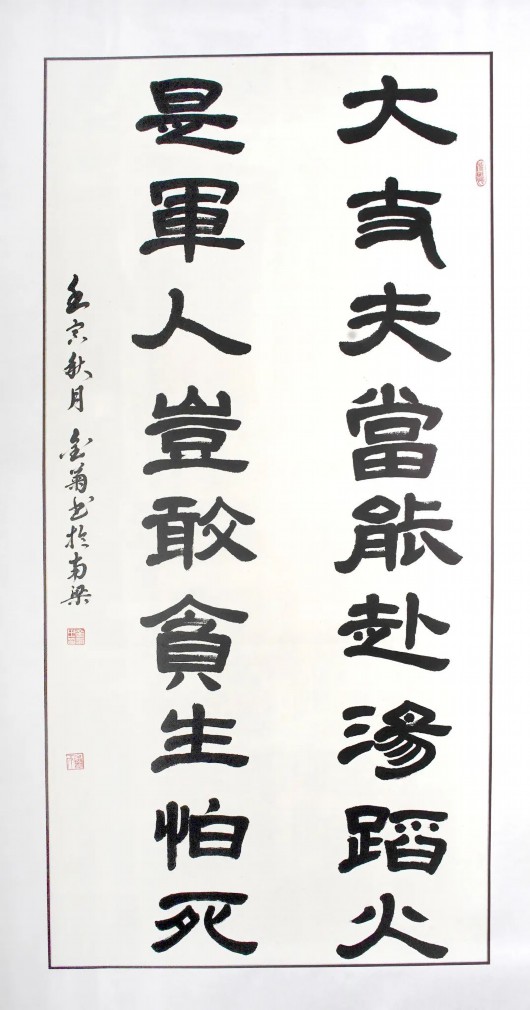 大丈夫當能赴湯蹈火
是軍人豈敢貪生怕死
壬寅秋月金菊书於南梁